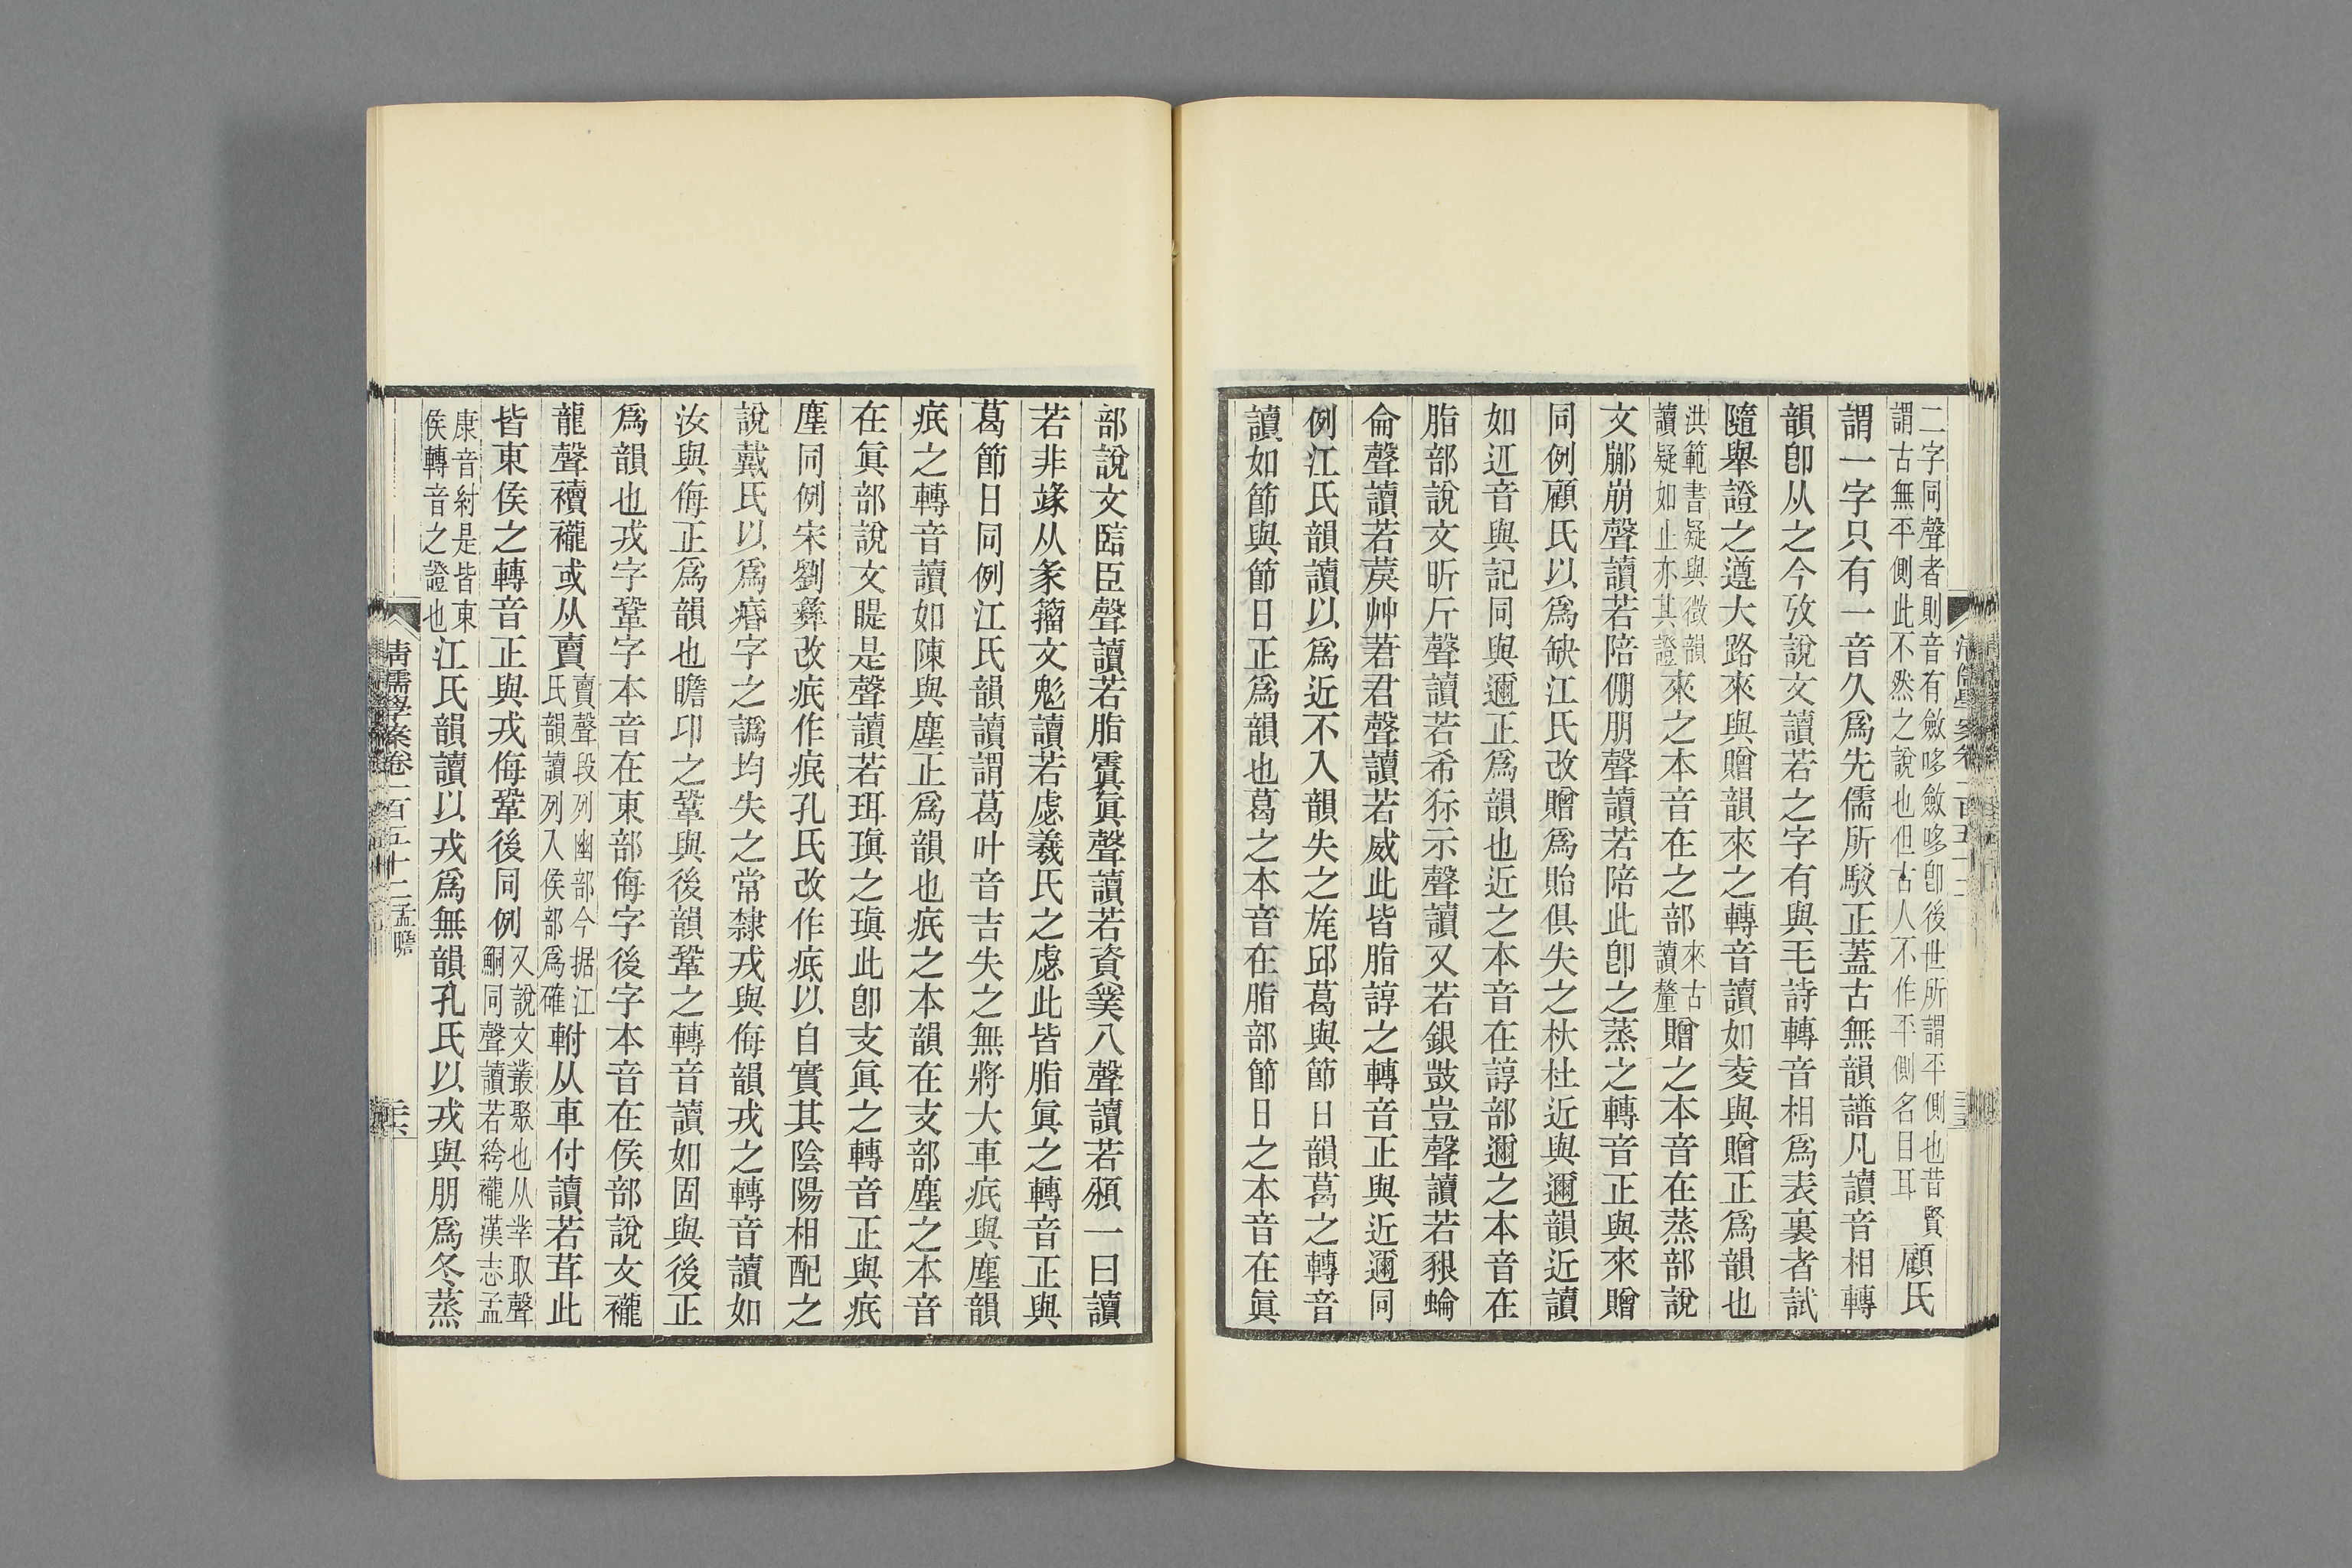 二字同聲者則音有斂哆斂哆卽後世所謂平側也昔賢
謂古無平側此不然之說也但古人不作平側名目耳
顧氏
謂一字只有一音久爲先儒所駁正蓋古無韻譜凡讀音相轉
韻卽从之今攷說文讀若之字有與毛詩轉音相爲表裏者試
隨舉證之遵大路來與贈韻來之轉音讀如夌與贈正爲韻也
洪範書疑與徵韻
讀疑如止亦其證
來之本音在之部
來古
讀釐
贈之本音在蒸部說
文䣙崩聲讀若陪倗朋聲讀若陪此卽之蒸之轉音正與來贈
同例顧氏以爲缺江氏改贈爲貽俱失之杕杜近與邇韻近讀
如䢋音與記同與邇正爲韻也近之本音在諄部邇之本音在
脂部說文昕斤聲讀若希狋示聲讀又若銀豈聲讀若豤蜦
侖聲讀若莀艸莙君聲讀若威此皆脂諄之轉音正與近邇同
例江氏韻讀以爲近不入韻失之旄邱葛與節日韻葛之轉音
讀如節與節日正爲韻也葛之本音在脂部節日之本音在眞
部說文臣聲讀若指眞聲讀若資八聲讀若頒一曰讀
若非从彖籀文鬽讀若虙羲氏之虙此皆脂眞之轉音正與
葛節日同例江氏韻讀謂葛叶音吉失之無將大車疷與塵韻
疷之轉音讀如陳與塵正爲韻也疷之本韻在支部塵之本音
在眞部說文睼是聲讀若珥瑱之瑱此卽支眞之轉音正與疷
塵同例宋劉彝改疷作痻孔氏改作疧以自實其陰陽相配之
說戴氏以爲㾕字之譌均失之常棣戎與侮韻戎之轉音讀如
汝與侮正爲韻也瞻卬之鞏與後韻鞏之轉音讀如固與後正
爲韻也戎字鞏字本音在東部侮字後字本音在侯部說文襱
龍聲襩襱或从賣
賣聲段列幽部今据江
氏韻讀列入侯部爲確
軵从車付讀若茸此
皆東侯之轉音正與戎侮鞏後同例
又說文叢聚也从丵取聲
鮦同聲讀若絝襱漢志孟
康音紂是皆東
侯轉音之證也
江氏韻讀以戎爲無韻孔氏以戎與朋爲冬蒸
清儒學案卷一百五十二 孟瞻
三六